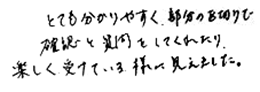 とても分かりやすく、部分の区切りで
確認と質問をしてくれたり、
楽しく受けている様に見えました。